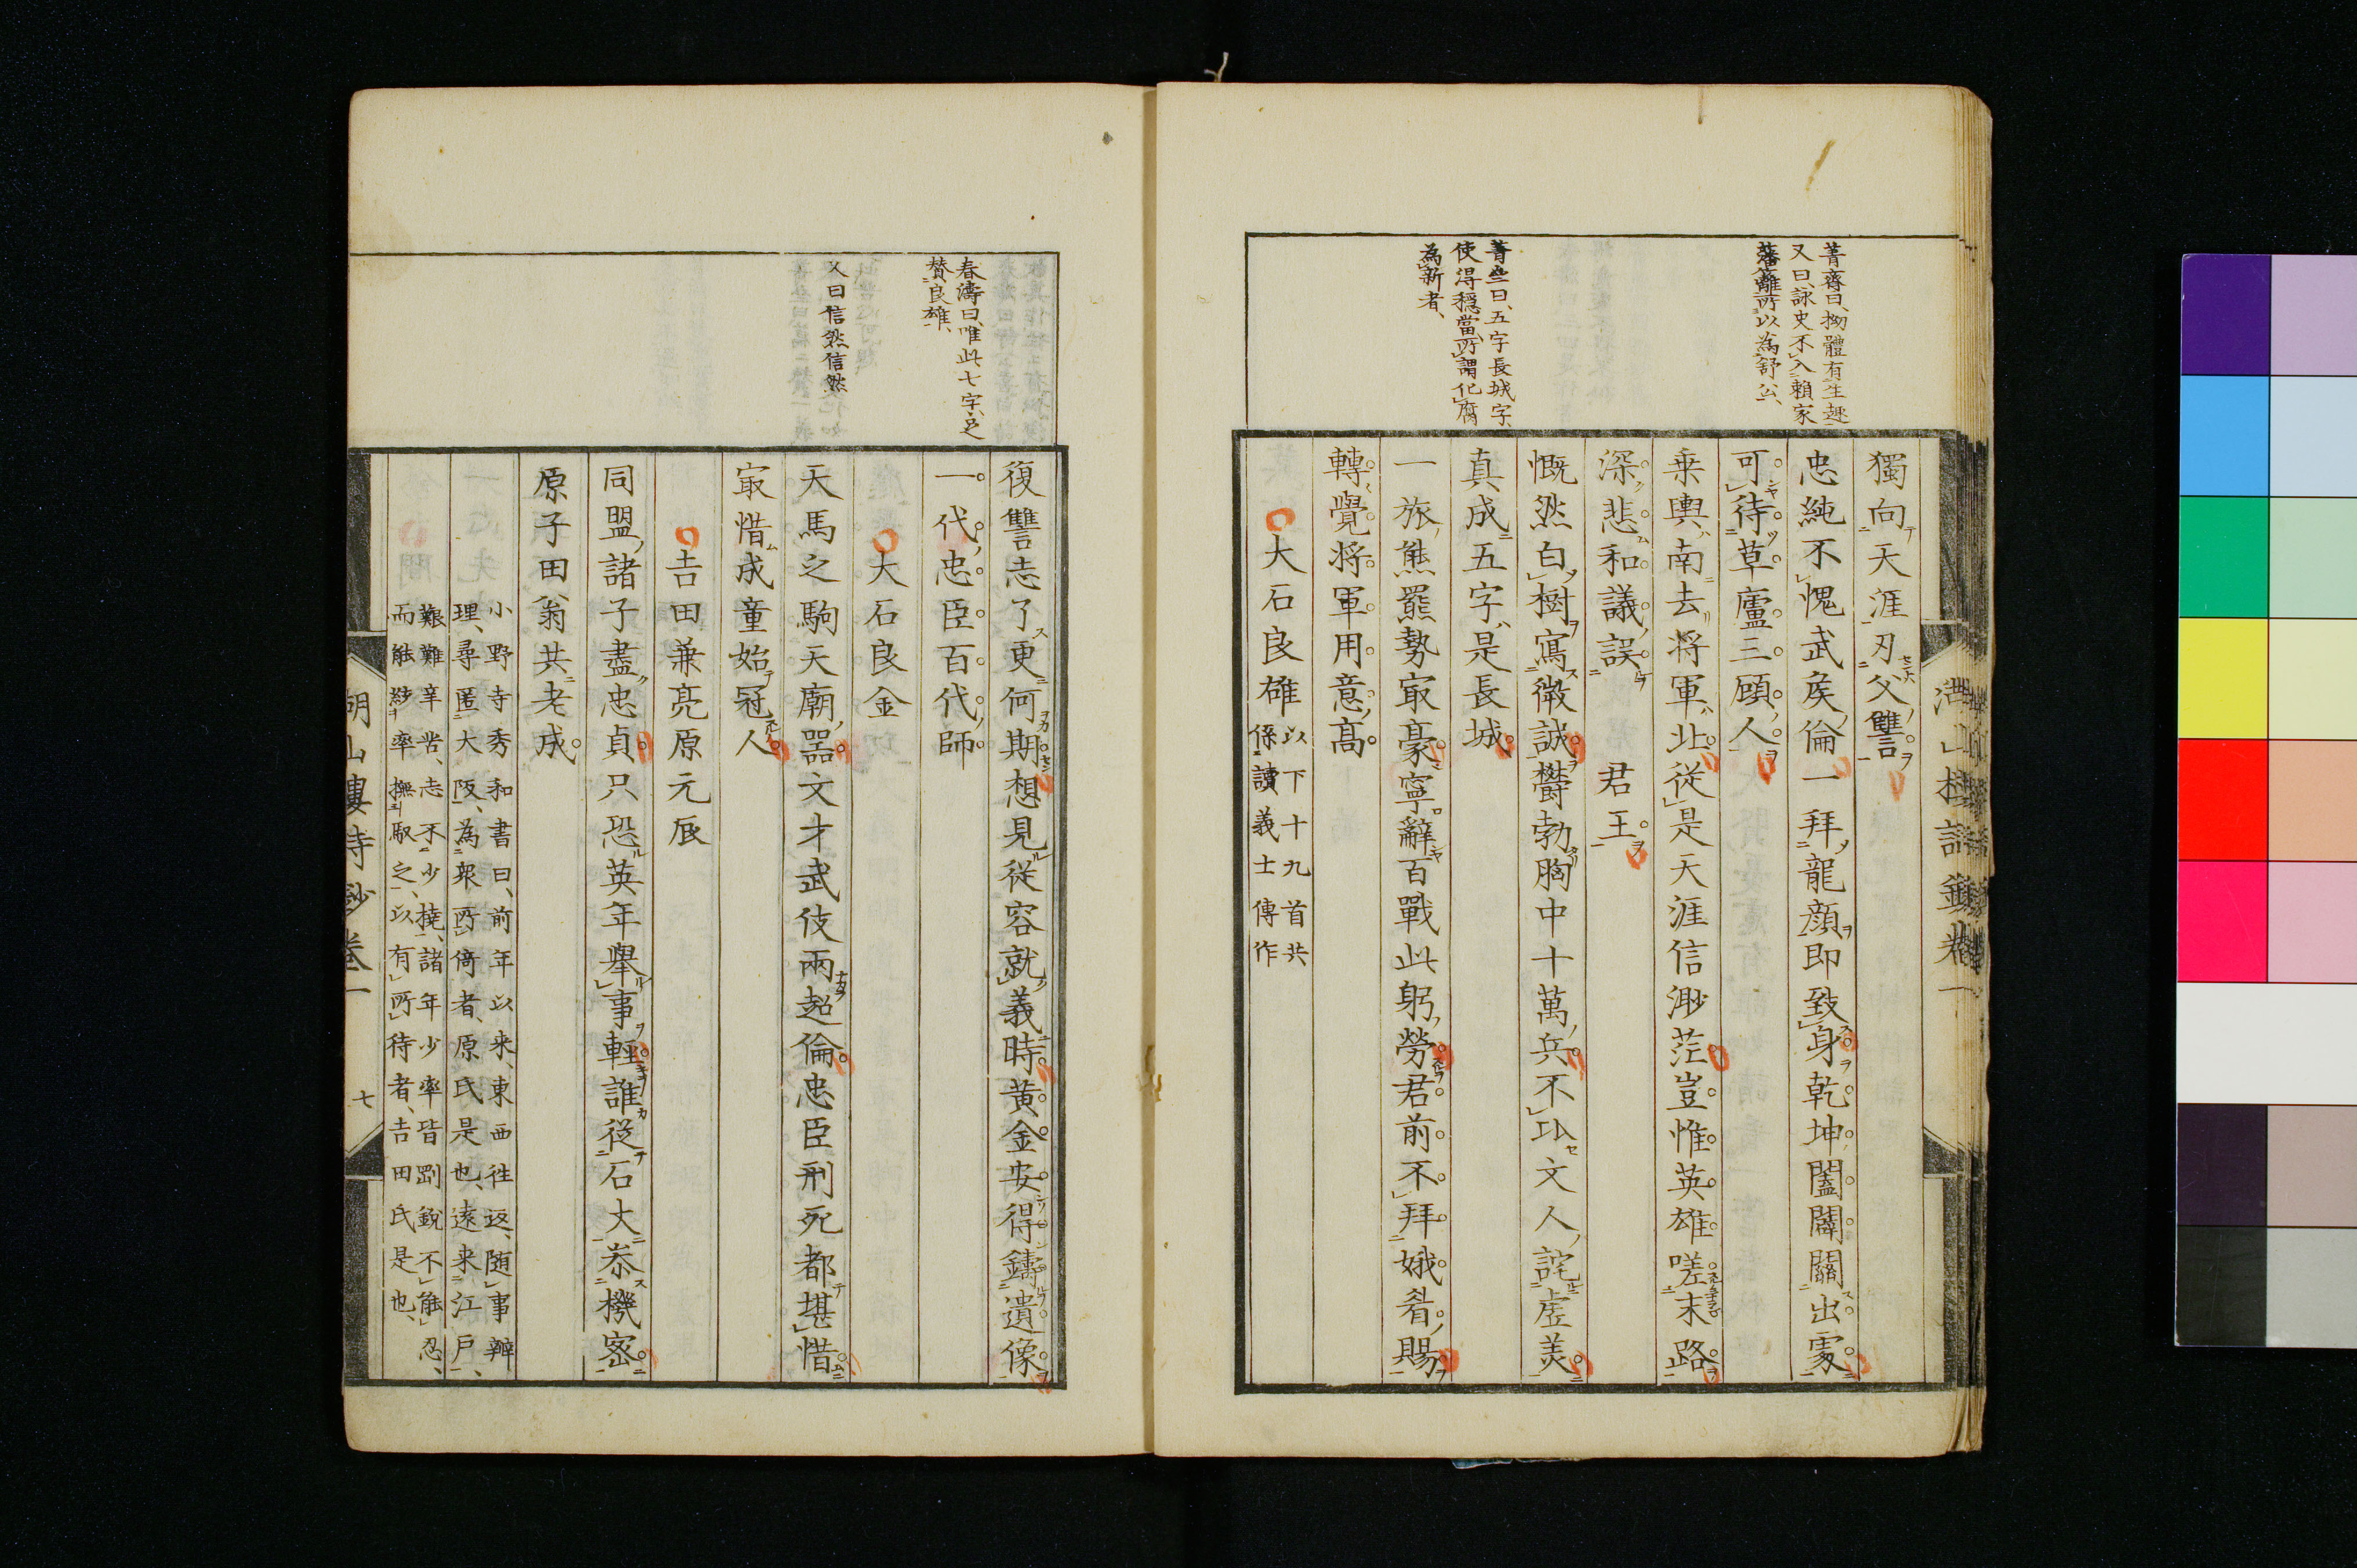 菁齋曰、拗體有生趣
又曰、詠史不入賴家
藩籬、所以為舒公、
菁些曰、五字長城字、
使得穩當、所謂化腐
為新者、
獨向天涯刃父讐
忠純不愧武矦倫一拜龍顔即致身乾坤闔闢關出處
可待草廬三顧人
乗輿南去将軍北從是天涯信渺茫豈惟英雄嗟末路
深悲和議誤君王
慨然白樹寫微誠欝勃胸中十萬兵不以文人詫虛美
真成五字是長城
一旅熊羆勢㝡豪寧辭百戰此躬勞君前不拜娥眉賜
轉覺将軍用意高
大石良雄以下十九首共
係讀義士傳作
春濤曰、唯此七字、足
賛良雄、
又曰信然信然
復讐志了更何期想見從容就義時黄金安得鑄遺像
一代忠臣百代師
大石良金
天馬之駒天廟器文才武伎兩超倫忠臣刑死都堪惜
㝡惜成童始冠人
吉田兼亮原元辰
同盟諸子盡忠貞只恐英年舉事輕誰從石大叅機密
原子田翁共老成
小野寺秀和書曰、前年以来、東西徃返、随事辨
理、尋匿大阪、為衆所倚者、原氏是也、遠来江戸、
艱難辛苦、志不少撓、諸年少率皆剛銳不能忍、
而能紗率撫馭之、以有所待者、吉田氏是也、
湖山樓詩鈔卷一
七